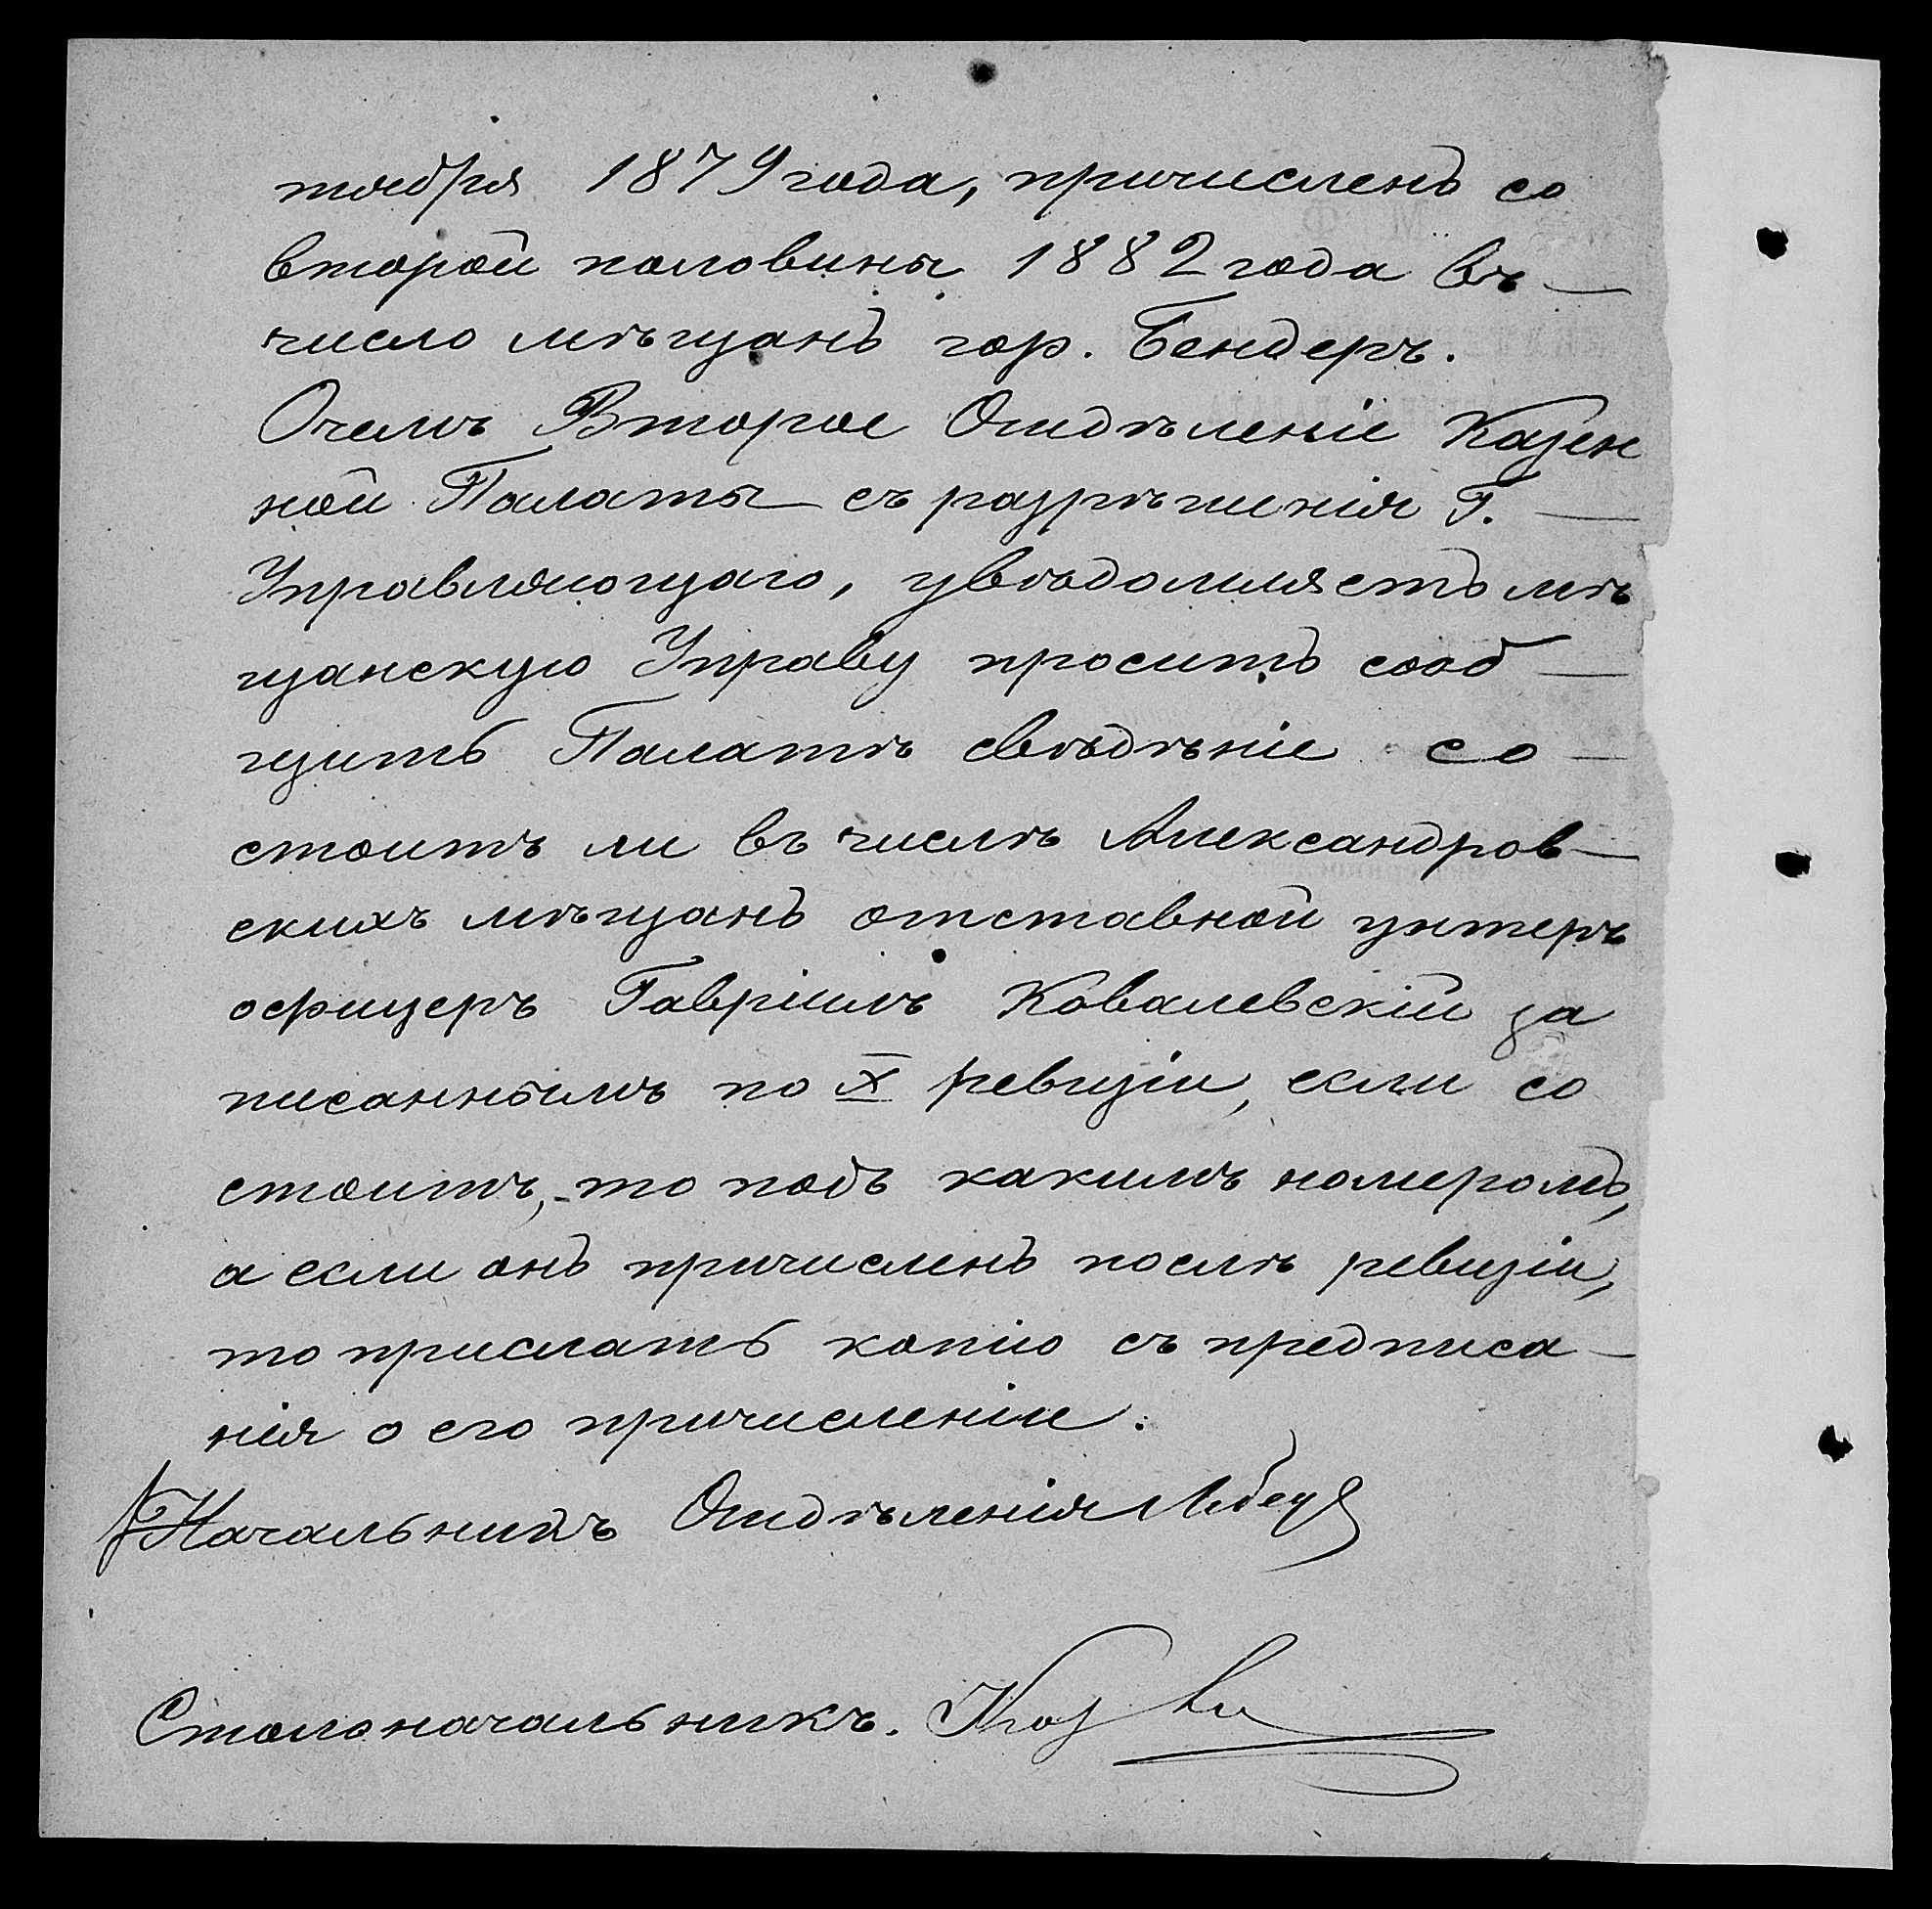 тября 1879 года, причисленъ со
второй половины 1882 года въ —
число мѣщанъ гор. Бендеръ.
О чемъ Второе Отдѣленіе Казен
ной Палаты съ разрѣшенія Г. —
Управляющаго, увѣдомляетъ мѣ
щанскую Управу проситъ сооб —
щить Палатѣ свѣдѣніе со —
стоитъ ли въ числѣ Александров —
скихъ мѣщанъ отставной унтеръ
офицеръ Гавріилъ Ковалевскій за
писаннымъ по X ревизіи, если со
стоитъ, - то подъ какимъ номеромъ,
а если онъ причисленъ послѣ ревизіи,
то прислать копію съ предписа —
нія о его причисленіи.
Начальникъ Отдѣленія
Столоначальникъ.